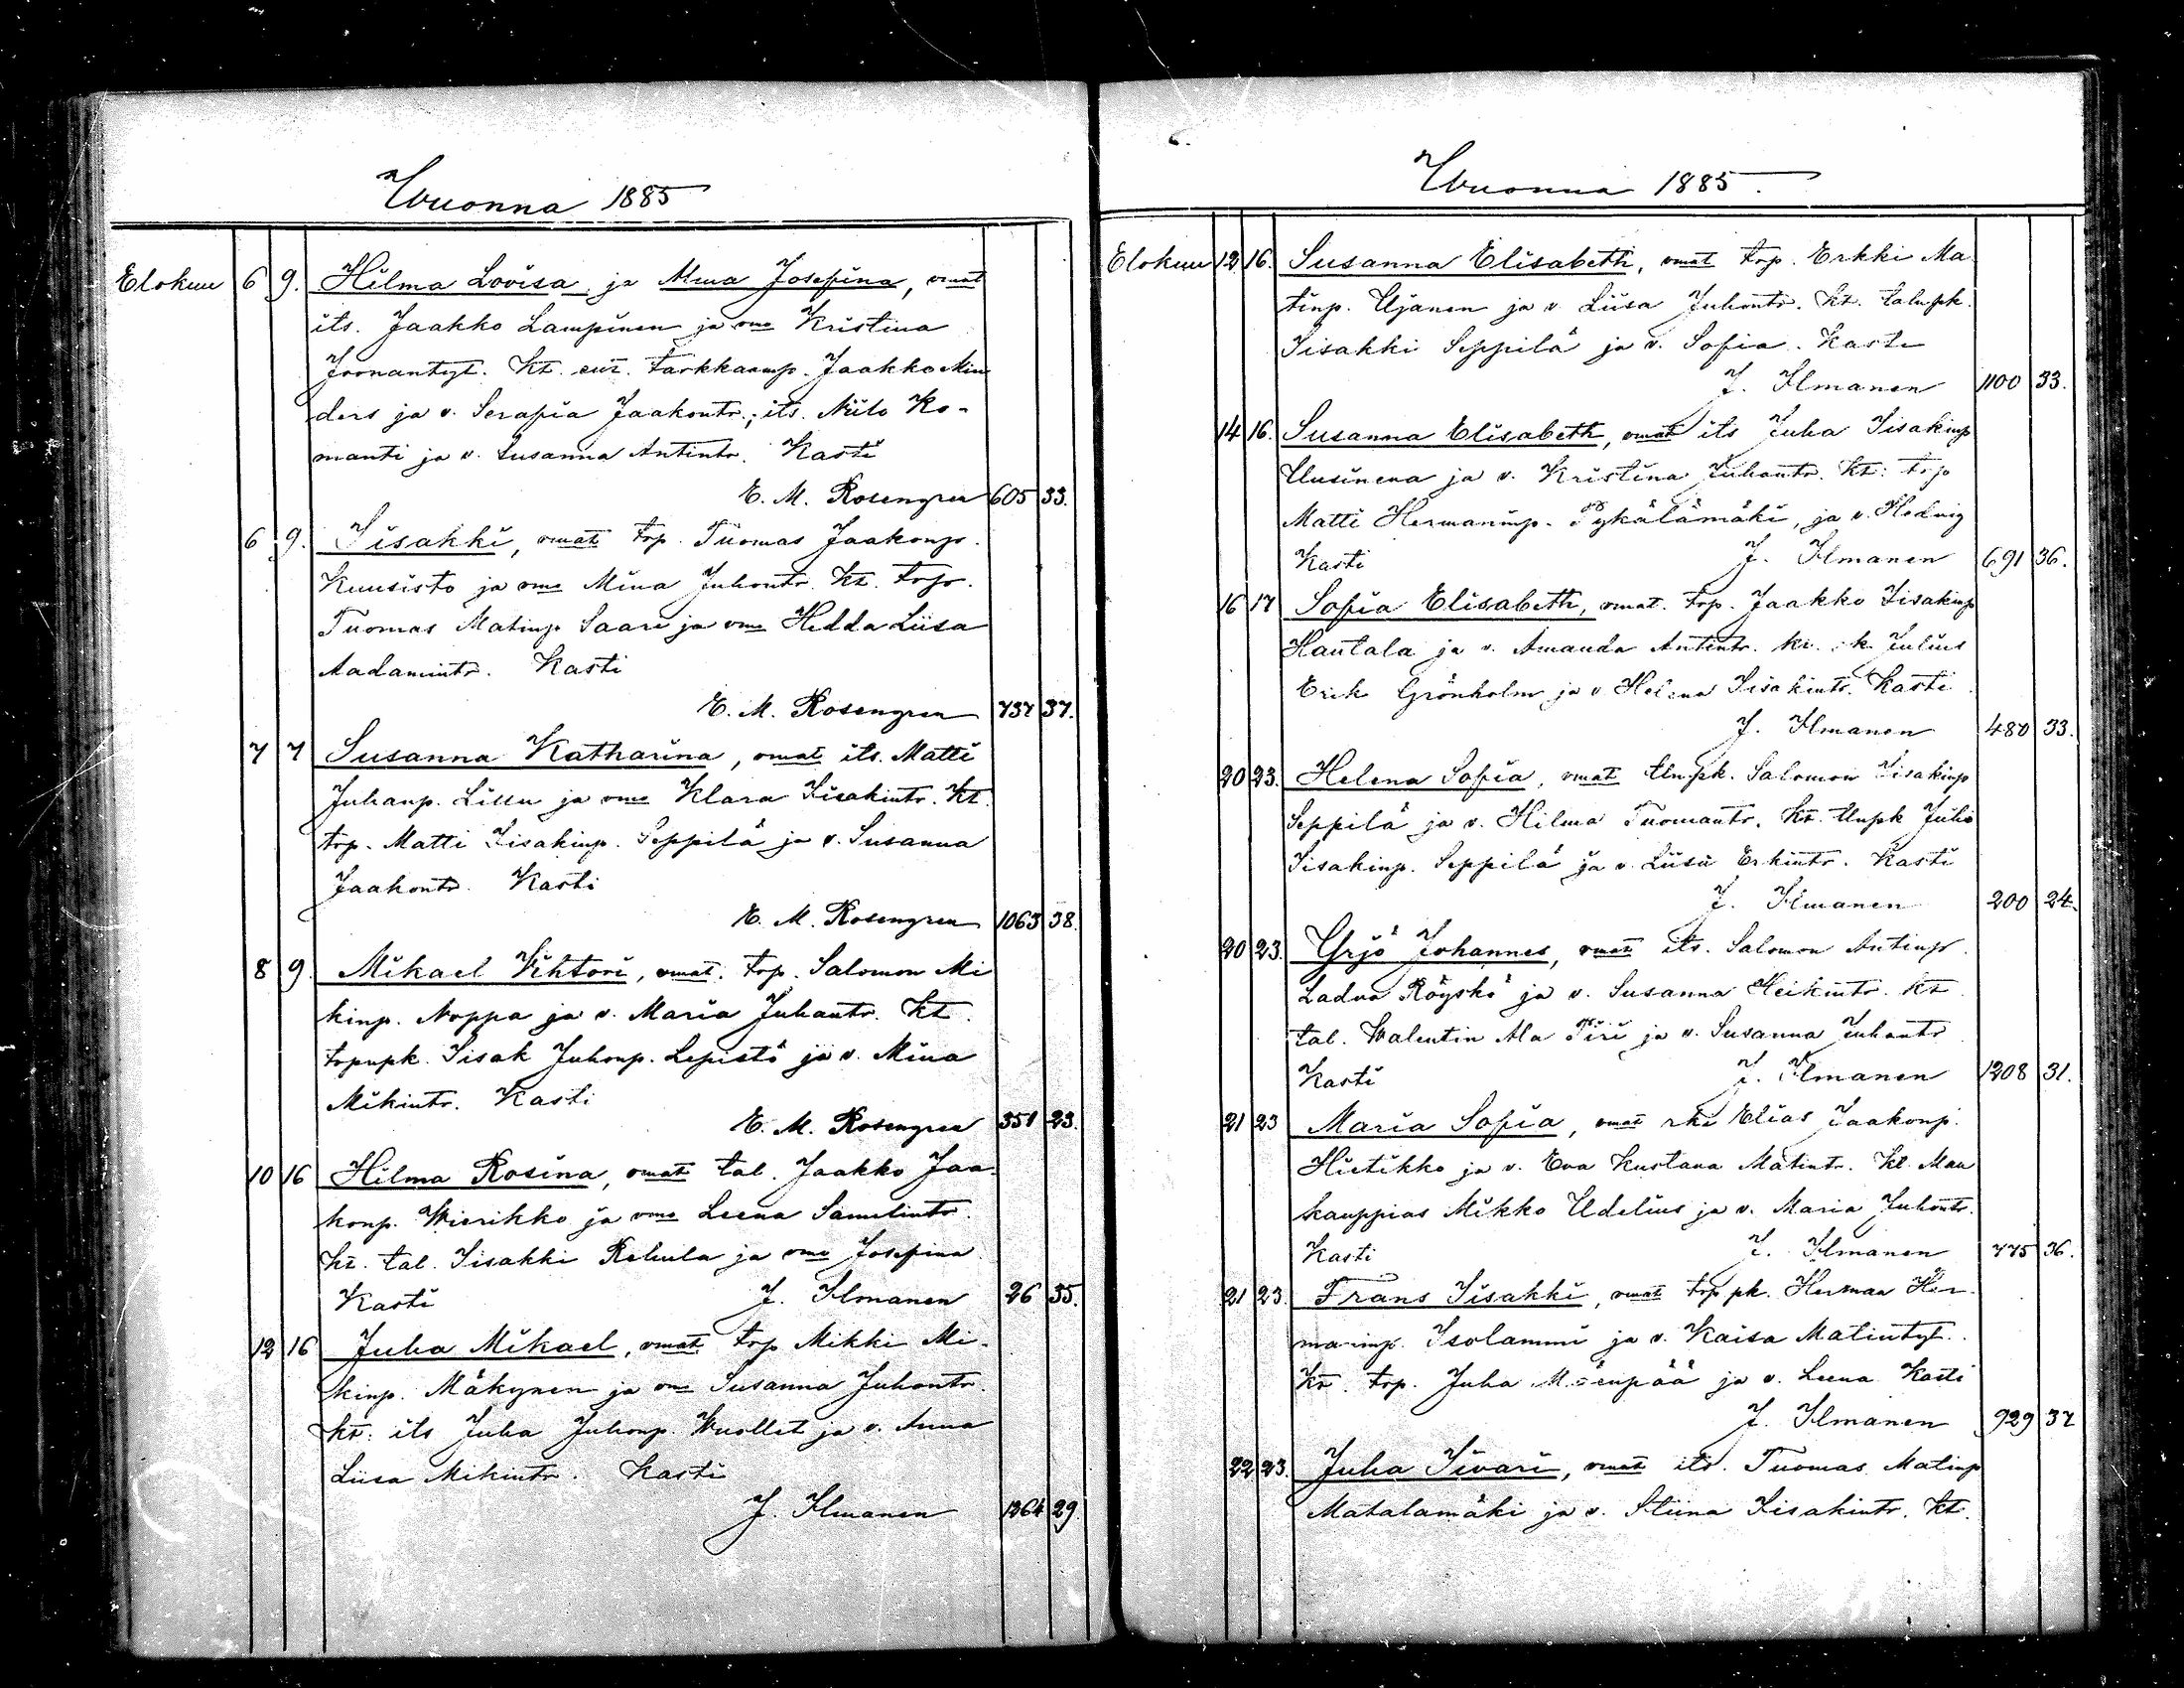 Wuonna 1885
Elokuu 6 9. Hilma Lovisa, ja Mina Josefina, vmat
its. Jaakko Lampinen ja vmo Kristina
Joonantyt. Kt. ent. tarkkaamp. Jaakko Min
ders ja v. Serafia Jaakontr.; its. Niilo Ko-
manti ja v. Susanna Antintr. Kasti
E. M. Rosengren 605 33.
6 9. Iisakki, vmat trp. Tuomas Jaakonp.
Kuusisto ja vmo Mina Juhontr. Kt. trp.
Tuomas Matinp. Saari ja vmo Hedda Liisa
Aadamintr. Kasti
E. M. Rosengren 737 37.
7 7 Susanna Katharina, vmat its. Matti
Juhanp. Lillu ja vmo Klara Iisakintr. Kt.
trp. Matti Iisakinp. Seppilä ja v. Susanna
Jaakontr. Kasti
E. M. Rosengren 1063 38.
8 9. Mikael Vihtori, vmat. trp. Salomon Mi
kinp. Noppa ja v. Maria Juhantr. Kt.
trpnpk. Iisak Juhonp. Lepistö ja v. Mina
Mikintr. Kasti
E. M. Rosengren 351 23.
10 16 Hilma Rosina, vmat tal. Jaakko Jaa-
konp. Wierikko ja vmo Leena Samelintr.
Kt. tal. Iisakki Rekula ja vmo Josefina.
Kasti J. Ilmanen 26 35.
12 16 Juha Mikael, vmat trp Mikki Mi-
kinp. Mäkynen ja vmo Susanna Juhontr.
Kt. its Juha Juhonp. Wuollet ja v. Anna
Liisa Mikintr. Kasti
J. Ilmanen 1264 29.
Wuonna 1885.
Elokuu 12 16. Susanna Elisabeth, vmat trp. Erkki Ma
tinp. Ujanen ja v. Liisa Juhontr. Kt. talnpk.
Iisakki Seppilä ja v. Sofia. Kasti
J. Ilmanen 1100 33.
14 16. Susanna Elisabeth, vmat its Juha Iisakinp
Uusinena ja v. Kristina Juhantr. Kt: trp
Matti Hermaninp. Pykälämäki, ja v. Hedvig
Kasti J. Ilmanen 691 36.
16 17 Sofia Elisabeth, vmat. trp. Jaakko Iisakinp
Hautala ja v. Amanda Antintr. Kt. Julius
Erik Grönholm ja v Helena Iisakintr. Kasti
J. Ilmanen 480 33.
20 23. Helena Sofia, vmat tlnpk. Salomon Iisakinp
Seppilä ja v. Hilma Tuomantr. Kt. tlnpk Juho
Iisakinp. Seppilä ja v. Liisa Erkintr. Kasti
J. Ilmanen 200 24.
20 23. Yrjö Johannes, vmat its. Salomon Antinp.
Ladva Röyskö ja v. Susanna Heikintr. Kt
tal. Walentin Ala Piri ja v. Susanna Juhantr
Kasti J. Ilmanen 1208 31.
21 23 Maria Sofia, vmat rki Elias Jaakonp.
Hietikko ja v. Eva Kustava Matintr. Kt. Maa
kauppias Mikko Udelius ja v. Maria Juhontr.
Kasti J. Ilmanen 775 36.
21 23. Frans Iisakki, vmat trp pk. Herman Her-
maninp. Isolammi ja v. Kaisa Matintyt.
Kt. trp. Juha Mäenpää ja v. Leena Kasti
J. Ilmanen 929 37
22 23. Juha Iivari, vmat its. Tuomas Matinp
Matalamäki ja v. Stiina Iisakintr. Kt.